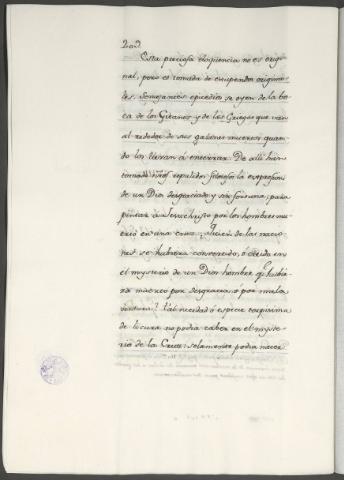 Esta preciosa eloqüencia no es origi-
nal, pero es tomada de estupendos origina-
les. Semejantes epicedios se oyen de la bo-
ca de los Gitanos y de las Griegas que van
al rededor de sus galanes muertos quan-
do los llevan á enterrar. De alli han
tomado repulidos la expresion
de un Dios desgraciado y sin fortuna, para
pintar à Jesuchristo por los hombres mu-
erto en una cruz. de las nacio-
nes se hubiera convertido, ó creido en
el mysterio de un Dios hombre q.e hubie-
ra muerto por desgracia, ó por mala
ventura? Tal necedad ó especie
de locura no podia caber en el myste-
rio de la Cruz: solamente podia nacer